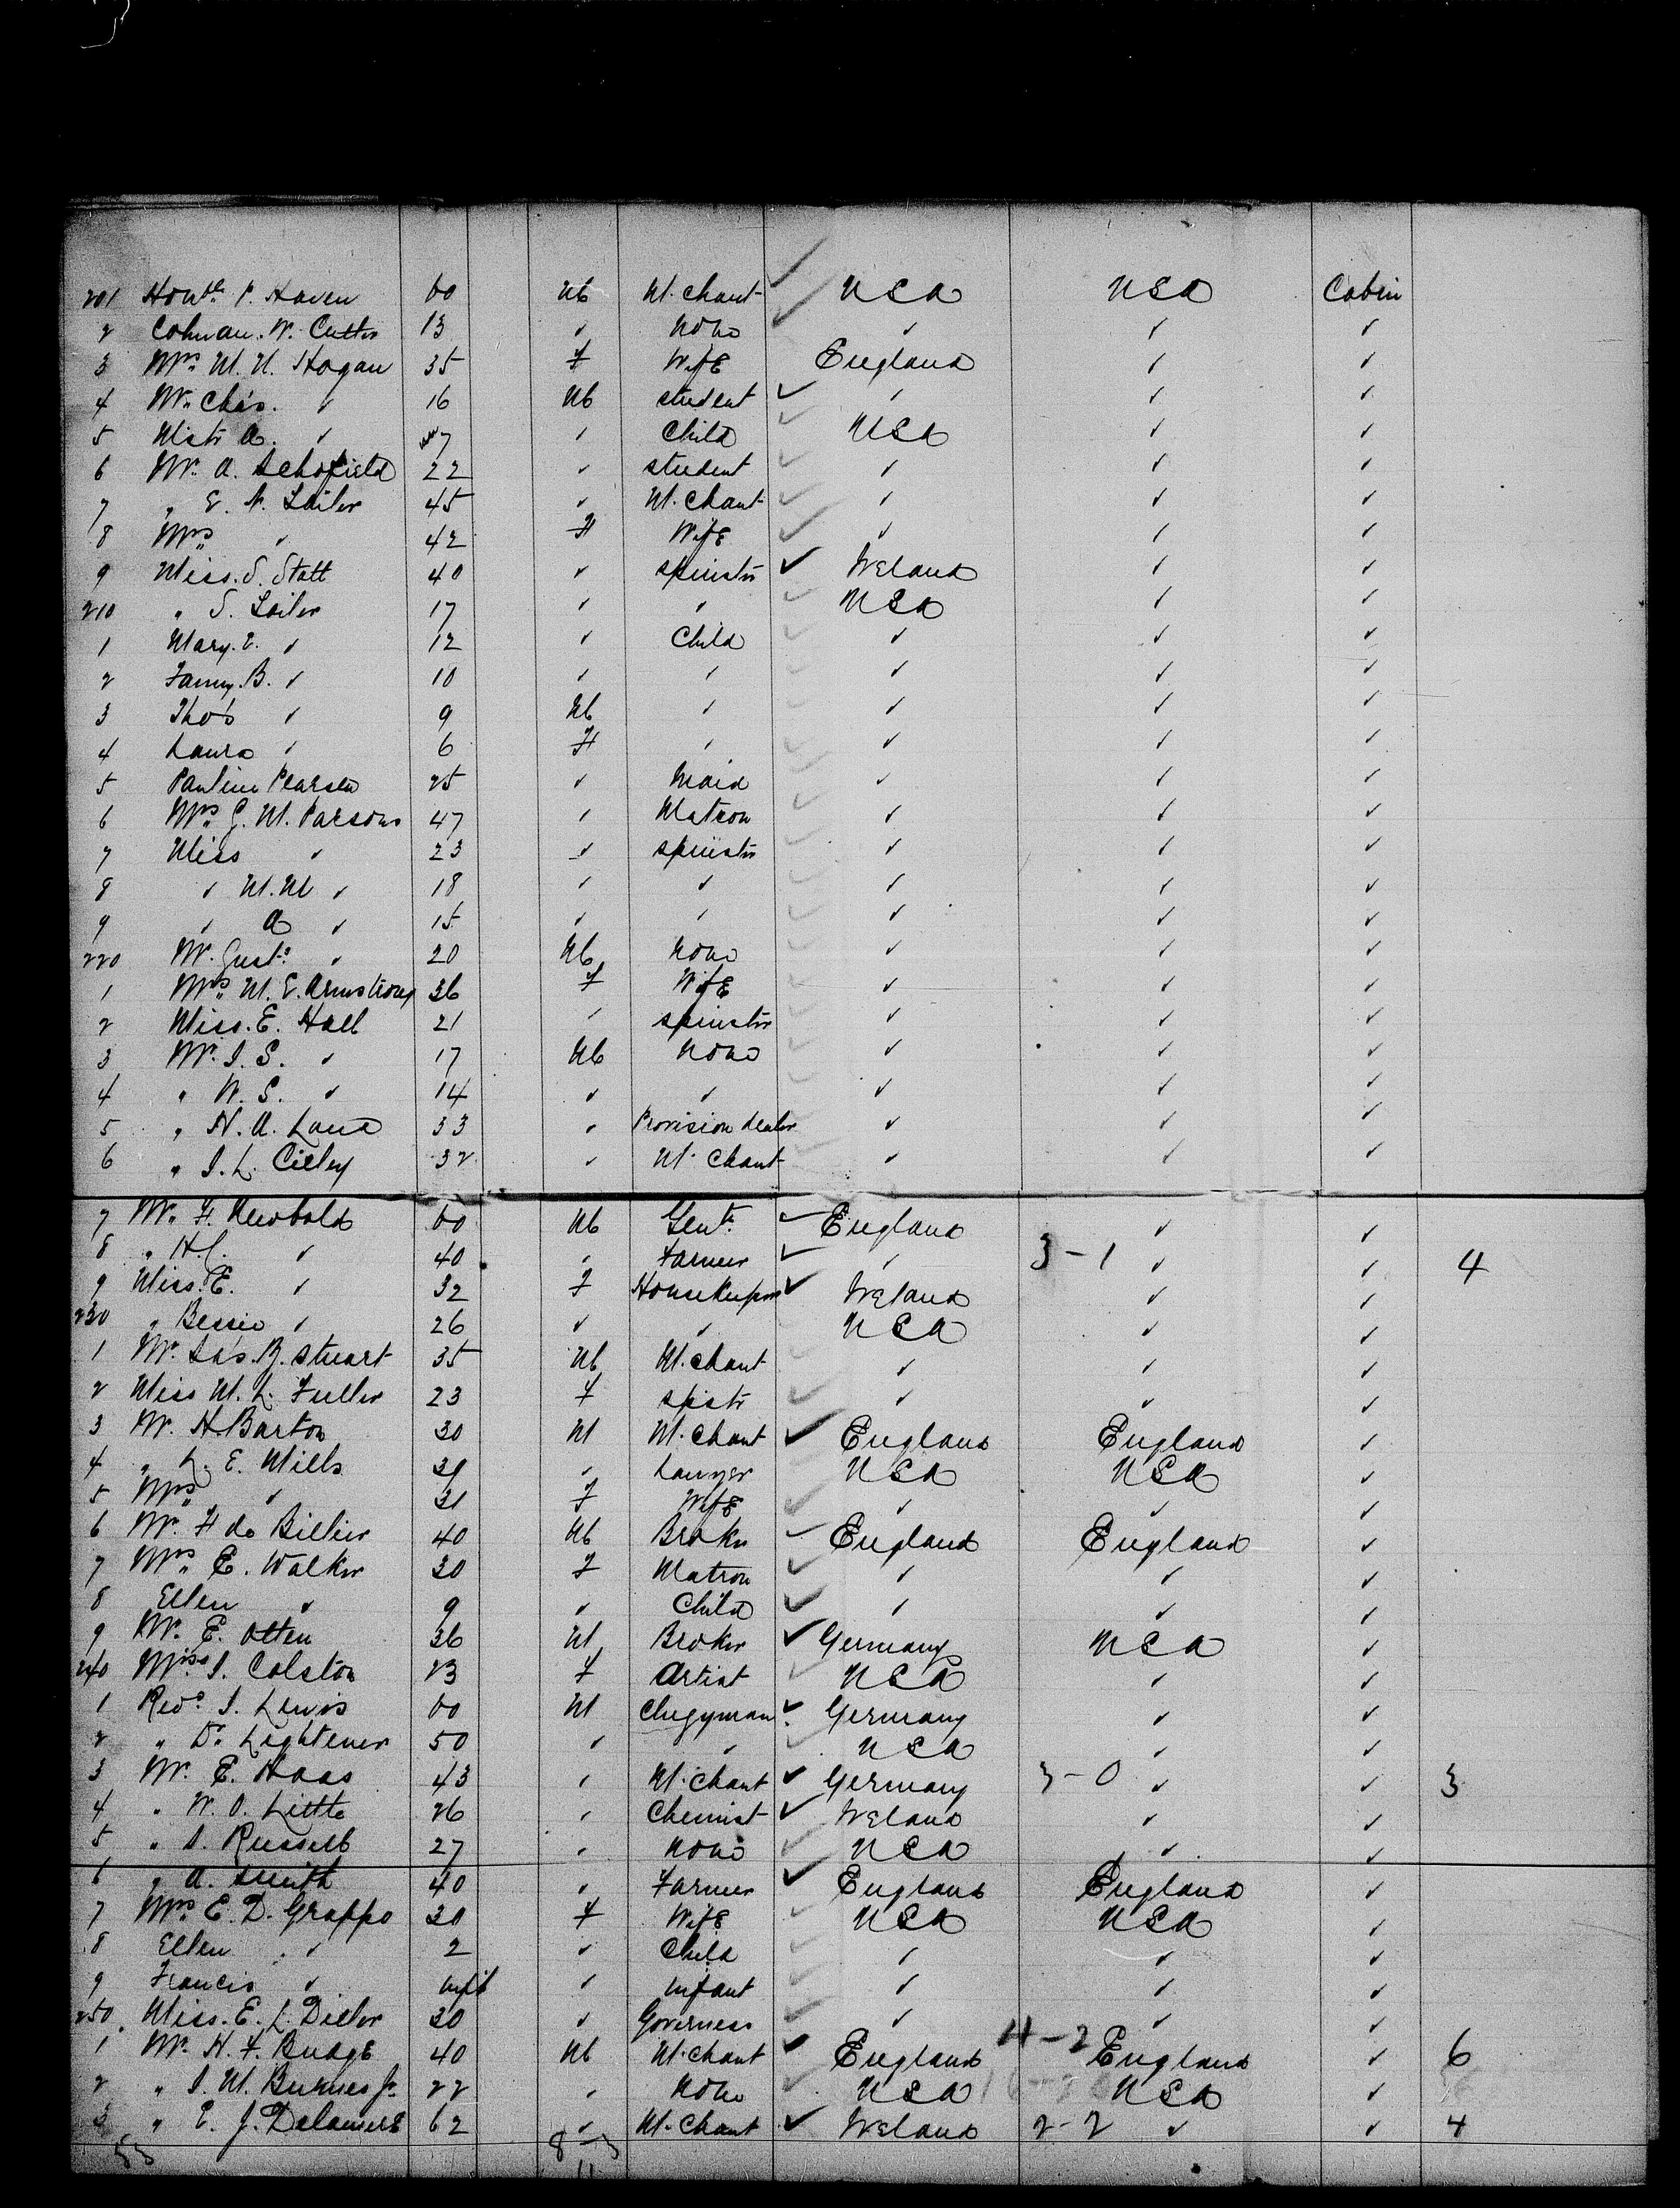 201 Honble P. Haven 60 M M.chant USA USA Cabin
2 Colman. W. Cutter 13 ✓ None ✓ ✓ ✓
3 Mrs M. N. Hogan 35 F Wife England ✓ ✓
4 Mr Chas. ✓ 16 M student ✓ ✓ ✓
5 Mstr A. ✓ 7 ✓ Child USA ✓ ✓
6 Mr. A. Schofield 22 ✓ student ✓ ✓ ✓
7 " E. N. 45 ✓ M.chant ✓ ✓ ✓
8 Mrs ✓ 42 F Wife ✓ ✓ ✓
9 Miss. S. Stott 40 ✓ spinstr Ireland ✓ ✓
210 " S. 17 ✓ ✓ USA ✓ ✓
1 Mary. E. ✓ 12 ✓ Child ✓ ✓ ✓
2 Fanny. B. ✓ 10 ✓ ✓ ✓ ✓ ✓
3 Thos ✓ 9 M ✓ ✓ ✓ ✓
4 Laura ✓ 6 F ✓ ✓ ✓ ✓
5 Pauline Pearsen 25 ✓ Maid ✓ ✓ ✓
6 Mrs G. M. Parsons 47 ✓ Matron ✓ ✓ ✓
7 Miss ✓ 23 ✓ spinstr ✓ ✓ ✓
8 ✓ M. M ✓ 18 ✓ ✓ ✓ ✓ ✓
9 ✓ A ✓ 15 ✓ ✓ ✓ ✓ ✓
220 Mr. Gust. ✓ 20 M None ✓ ✓ ✓
1 Mrs M. E. Armstrong 36 F Wife ✓ ✓ ✓
2 Miss. E. Hall 21 ✓ spinstr ✓ ✓ ✓
3 Mr. I. S. ✓ 17 M None ✓ ✓ ✓
4 " W. S. ✓ 14 ✓ ✓ ✓ ✓ ✓
5 " H. A. Lane 33 ✓ Provision dealer ✓ ✓ ✓
6 " I. L. Cilley 32 ✓ M.chant ✓ ✓ ✓
7 Mr. F. Newbold 60 M Gent. England ✓ ✓
8 " H. C. ✓ 40 ✓ Farmer ✓ 3-1 ✓ ✓ 4
9 Miss. E. ✓ 32 F Housekeeper Ireland ✓ ✓
230 " Bessie ✓ 26 ✓ ✓ USA ✓ ✓
1 Mr. Jas. B. Stuart 35 M M.chant ✓ ✓ ✓
2 Miss M. L. Fuller 23 F spstr ✓ ✓ ✓
3 Mr. H. Barton 30 M M.chant England England ✓
4 " L. E. Mills 39 ✓ Lawyer USA USA ✓
5 Mrs ✓ 31 F Wife ✓ ✓ ✓
6 Mr. F de Billier 40 M Broker England England ✓
7 Mrs E. Walker 30 F Matron ✓ ✓ ✓
8 Ellen ✓ 9 ✓ Child ✓ ✓ ✓
9 Mr. E. Otten 36 M Broker Germany USA ✓
240 Miss I. Colston 23 F Artist USA ✓ ✓
1 Revd. I. Lewis 60 M Clegyman Germany ✓ ✓
2 " Dr. Lightener 50 ✓ ✓ USA ✓ ✓
3 Mr. E. Haas 43 ✓ M.chant Germany 3-0 ✓ ✓ 3
4 " W. O. Little 26 ✓ Chemist Ireland ✓ ✓
5 " S. Russell 27 ✓ None USA ✓ ✓
6 " A. Smith 40 ✓ Farmer England England ✓
7 Mrs E. D. Grappo 30 F Wife USA USA ✓
8 Ellen ✓ 2 ✓ Child ✓ ✓ ✓
9 Francis ✓ ✓ infant ✓ ✓ ✓
250 Miss. E. L. Diller 30 ✓ Governess ✓ ✓ ✓
1 Mr. H. F. Budge 40 M M.chant England 4-2 England ✓ 6
2 " I. M. Burnes Jr. 22 ✓ None USA USA ✓
3 " E. J. Delamere 62 ✓ M.chant Ireland 2-2 ✓ ✓ 4
53 8-3
11